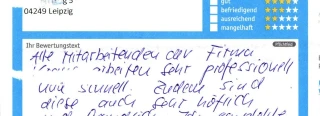 04249 Leipzig
gut
befriedigend
ausreichend
mangelhaft
Ihr Bewertungstext
Pflichtfeld
Alle Mitarbeitenden der Firma
arbeiten sehr professionell
und schnell. Zudem sind
diese auch sehr höflich
und